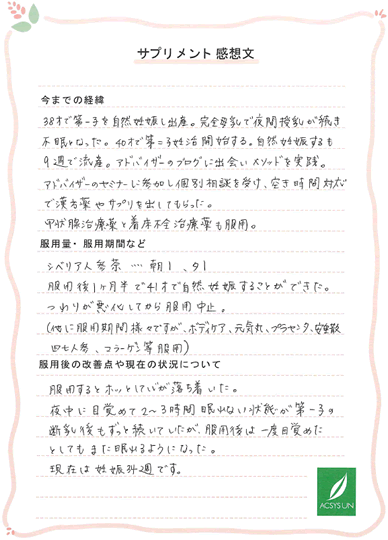 サプリメント 感想文
今までの経緯
38才で第一子を自然妊娠し出産。完全母乳で夜間授乳が続き
不眠となった。40才で第二子妊活開始する。自然妊娠するも
9週で流産。アドバイザーのブログに出会いメソッドを実践。
アドバイザーのセミナーに参加し個別相談を受け、空き時間対応
で漢方薬やサプリを出してもらった。
甲状腺治療薬と着床不全治療薬も服用。
服用量・服用期間など
シベリア人参茶 … 朝1、夕1
服用後1ヶ月半で41才で自然妊娠することができた。
つわりが悪化してから服用中止。
(他に服用期間様々ですが、ボディケア、元気丸、プラセンタ、安中散
四七人参、コラーゲン等服用)
服用後の改善点や現在の状況について
服用するとホッとして心が落ち着いた。
夜中に目覚めて2〜3時間眠れない状態が第一子の
断乳後もずっと続いていたが、服用後は一度目覚めた
としてもまた眠れるようになった。
現在は妊娠34週です。
ACSYSUN